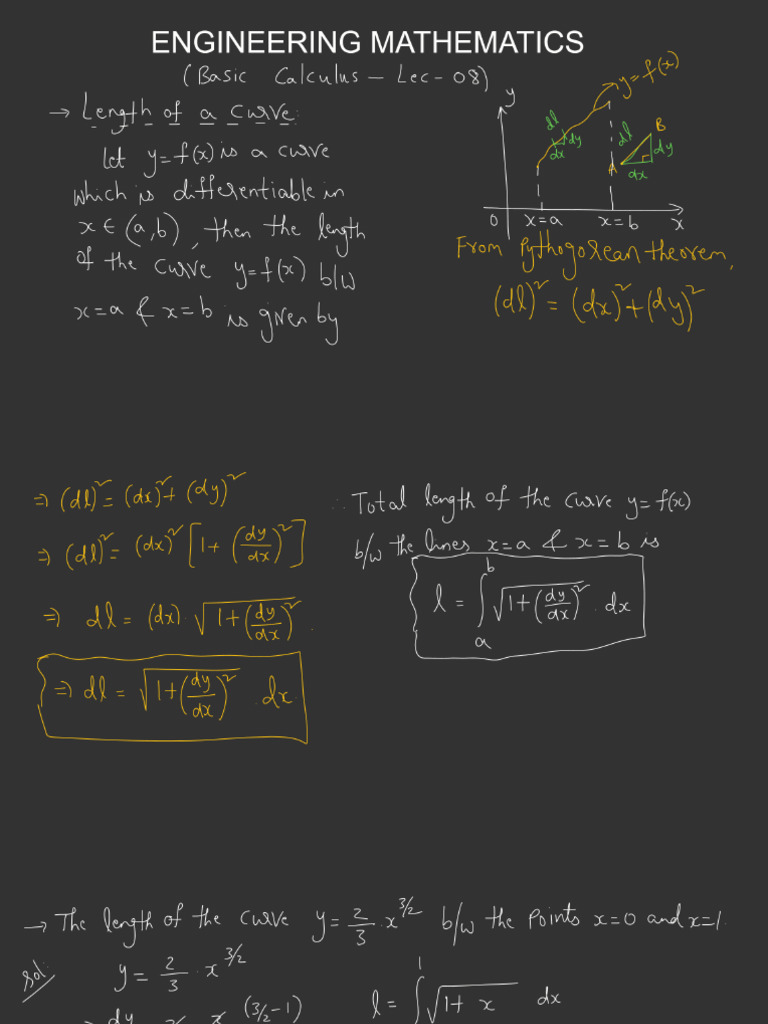 ENGINEERING MATHEMATICS
(Basic Calculus - Lec-08)
→ Length of a curve:
let y=f(x) is a curve
which is differentiable in
x∈(a,b), then the length
of the curve y=f(x) b/w
x=a & x=b is given by
y
y=f(x)
dl
dy
dx
A
B
dl
dy
dx
0 x=a x=b x
From Pythogorean theorem,
(dl)² = (dx)²+(dy)²
⇒ (dl)² = (dx)²+(dy)²
⇒ (dl)² = (dx)² [1+(dy/dx)²]
⇒ dl = (dx)·√(1+(dy/dx)²).
⇒ dl = √(1+(dy/dx)²) · dx
∴ Total length of the curve y=f(x)
b/w the lines x=a & x=b is
l = ∫ₐᵇ √(1+(dy/dx)²) · dx
→ The length of the curve y=2/3·x^(3/2) b/w the points x=0 and x=1.
Sol: y=2/3·x^(3/2)
l = ∫¹ √(1+x) dx
(3/2-1)